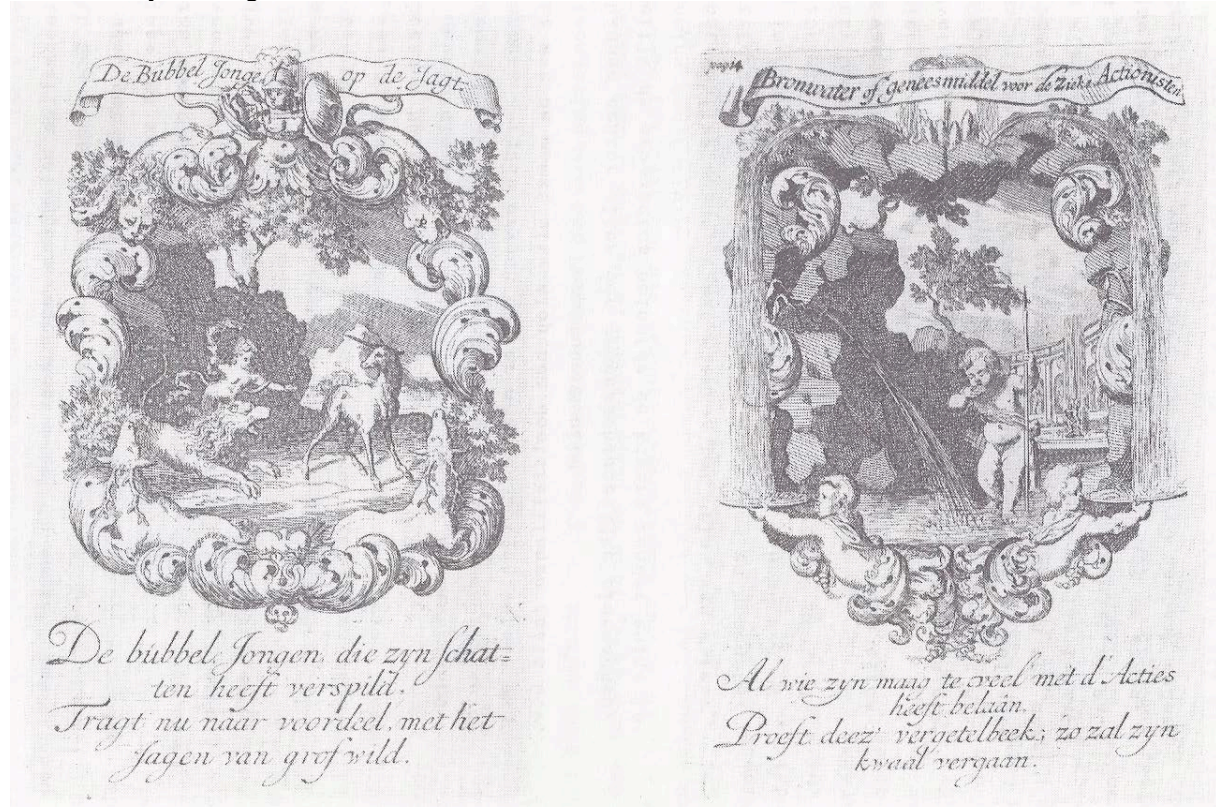 De Bubbel Jonge op de Jagt.
De bubbel Jongen, die zyn schat=
ten heeft verspild.
Tragt nu naar voordeel, met het
Jagen van grof wild.
pag 14
Bronwater of geneesmiddel voor de Zieke Actionisten
Al wie zyn maag te veel met d'Acties
heeft belaân,
Proeft deez' vergetelbeek; zo zal zyn
kwaal vergaan.